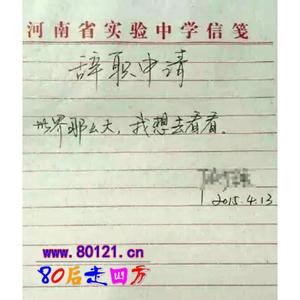 河南省实验中学信笺
辞职申请
世界那么大，我想去看看。
2015.4.13
www.80121.cn
80后走四方